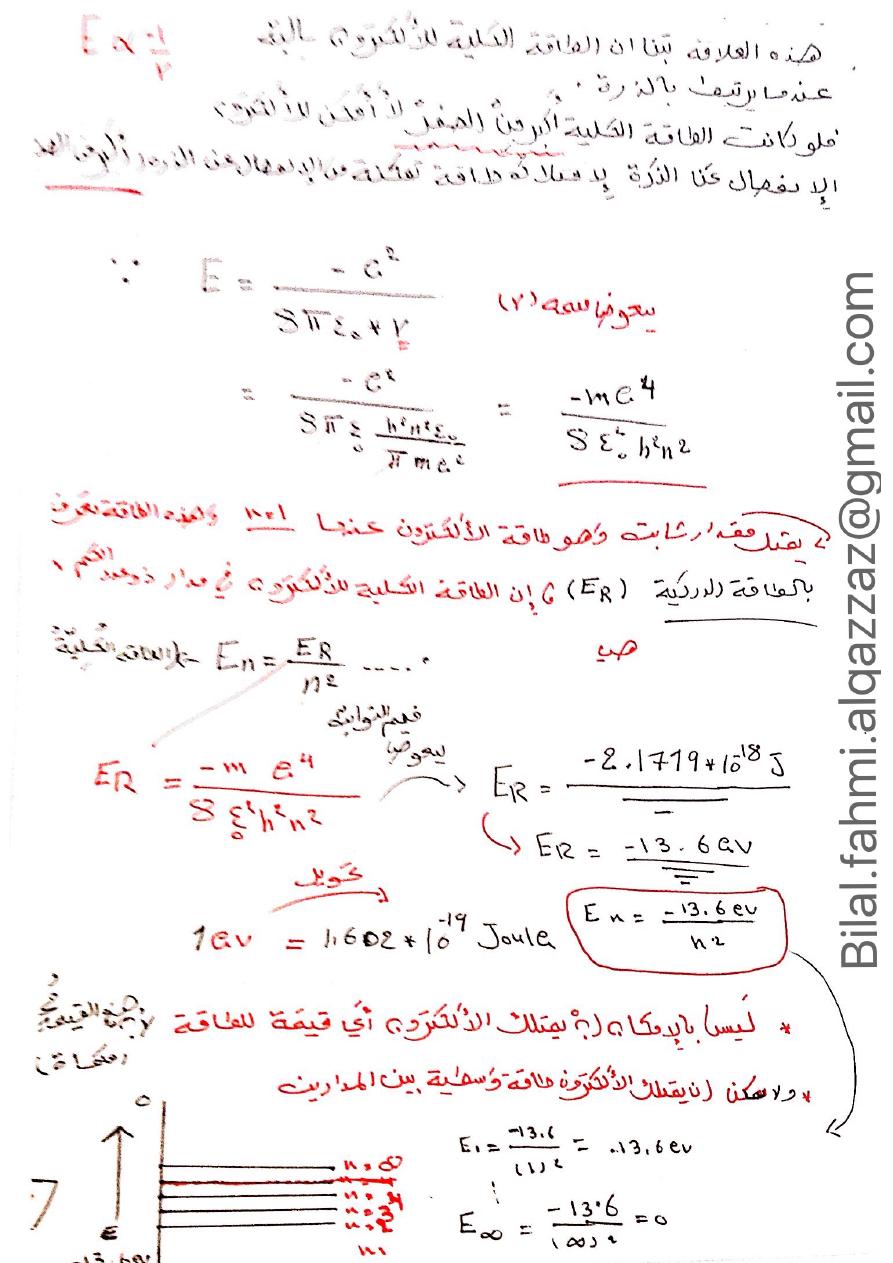 هذه العلاقة تبنا ان الطاقة الكلية للألكترون سالبة
E ∝ -1/r
عندما يرتبط بالذرة .
فلو كانت الطاقة الكلية أكبر من الصفر لأمكن للألكترون
الإنفصال عن الذرة لامتلاكه طاقة تمكنه من الإنفصال عن الذرة
∵ E = -e² / 8πε₀ * r
يعوض (r)
= -e² / (8πε₀ (h²n²ε₀ / πme²)) = -me⁴ / 8ε₀²h²n²
يمثل مقدار ثابت وهو طاقة الألكترون عندما n=1 وهذه الطاقة تعرف
بالطاقة (E_R) إن الطاقة الكلية للألكترون في مدار ذو عدد الكم
هي
الطاقة الكلية E_n = E_R / n² .....
يعوض قيم الثوابت
E_R = -m e⁴ / 8ε₀²h²n²
E_R = -2.1779*10⁻¹⁸ J
E_R = -13.6 eV
تحويل
1ev = 1.602*10⁻¹⁹ Joule
E_n = -13.6 ev / n²
* ليس بالإمكان أن يمتلك الألكترون أي قيمة للطاقة
* ولا يمكن أن يمتلك الألكترون طاقة وسطية بين المدارين
E₁ = -13.6 / (1)² = -13.6 ev
⋮
E∞ = -13.6 / (∞)² = 0
0
n=∞
n=4
n=3
n=2
n=1
E
-13.6ev
7
Bilal.fahmi.alqazzaz@gmail.com